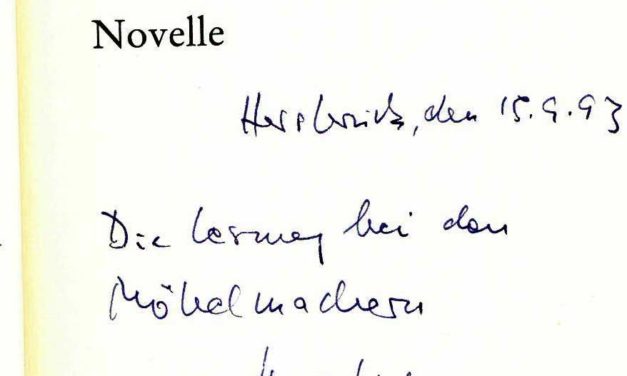 Novelle
Hersbruck, den 15.9.93
Die Lesung bei den
Möbelmachern